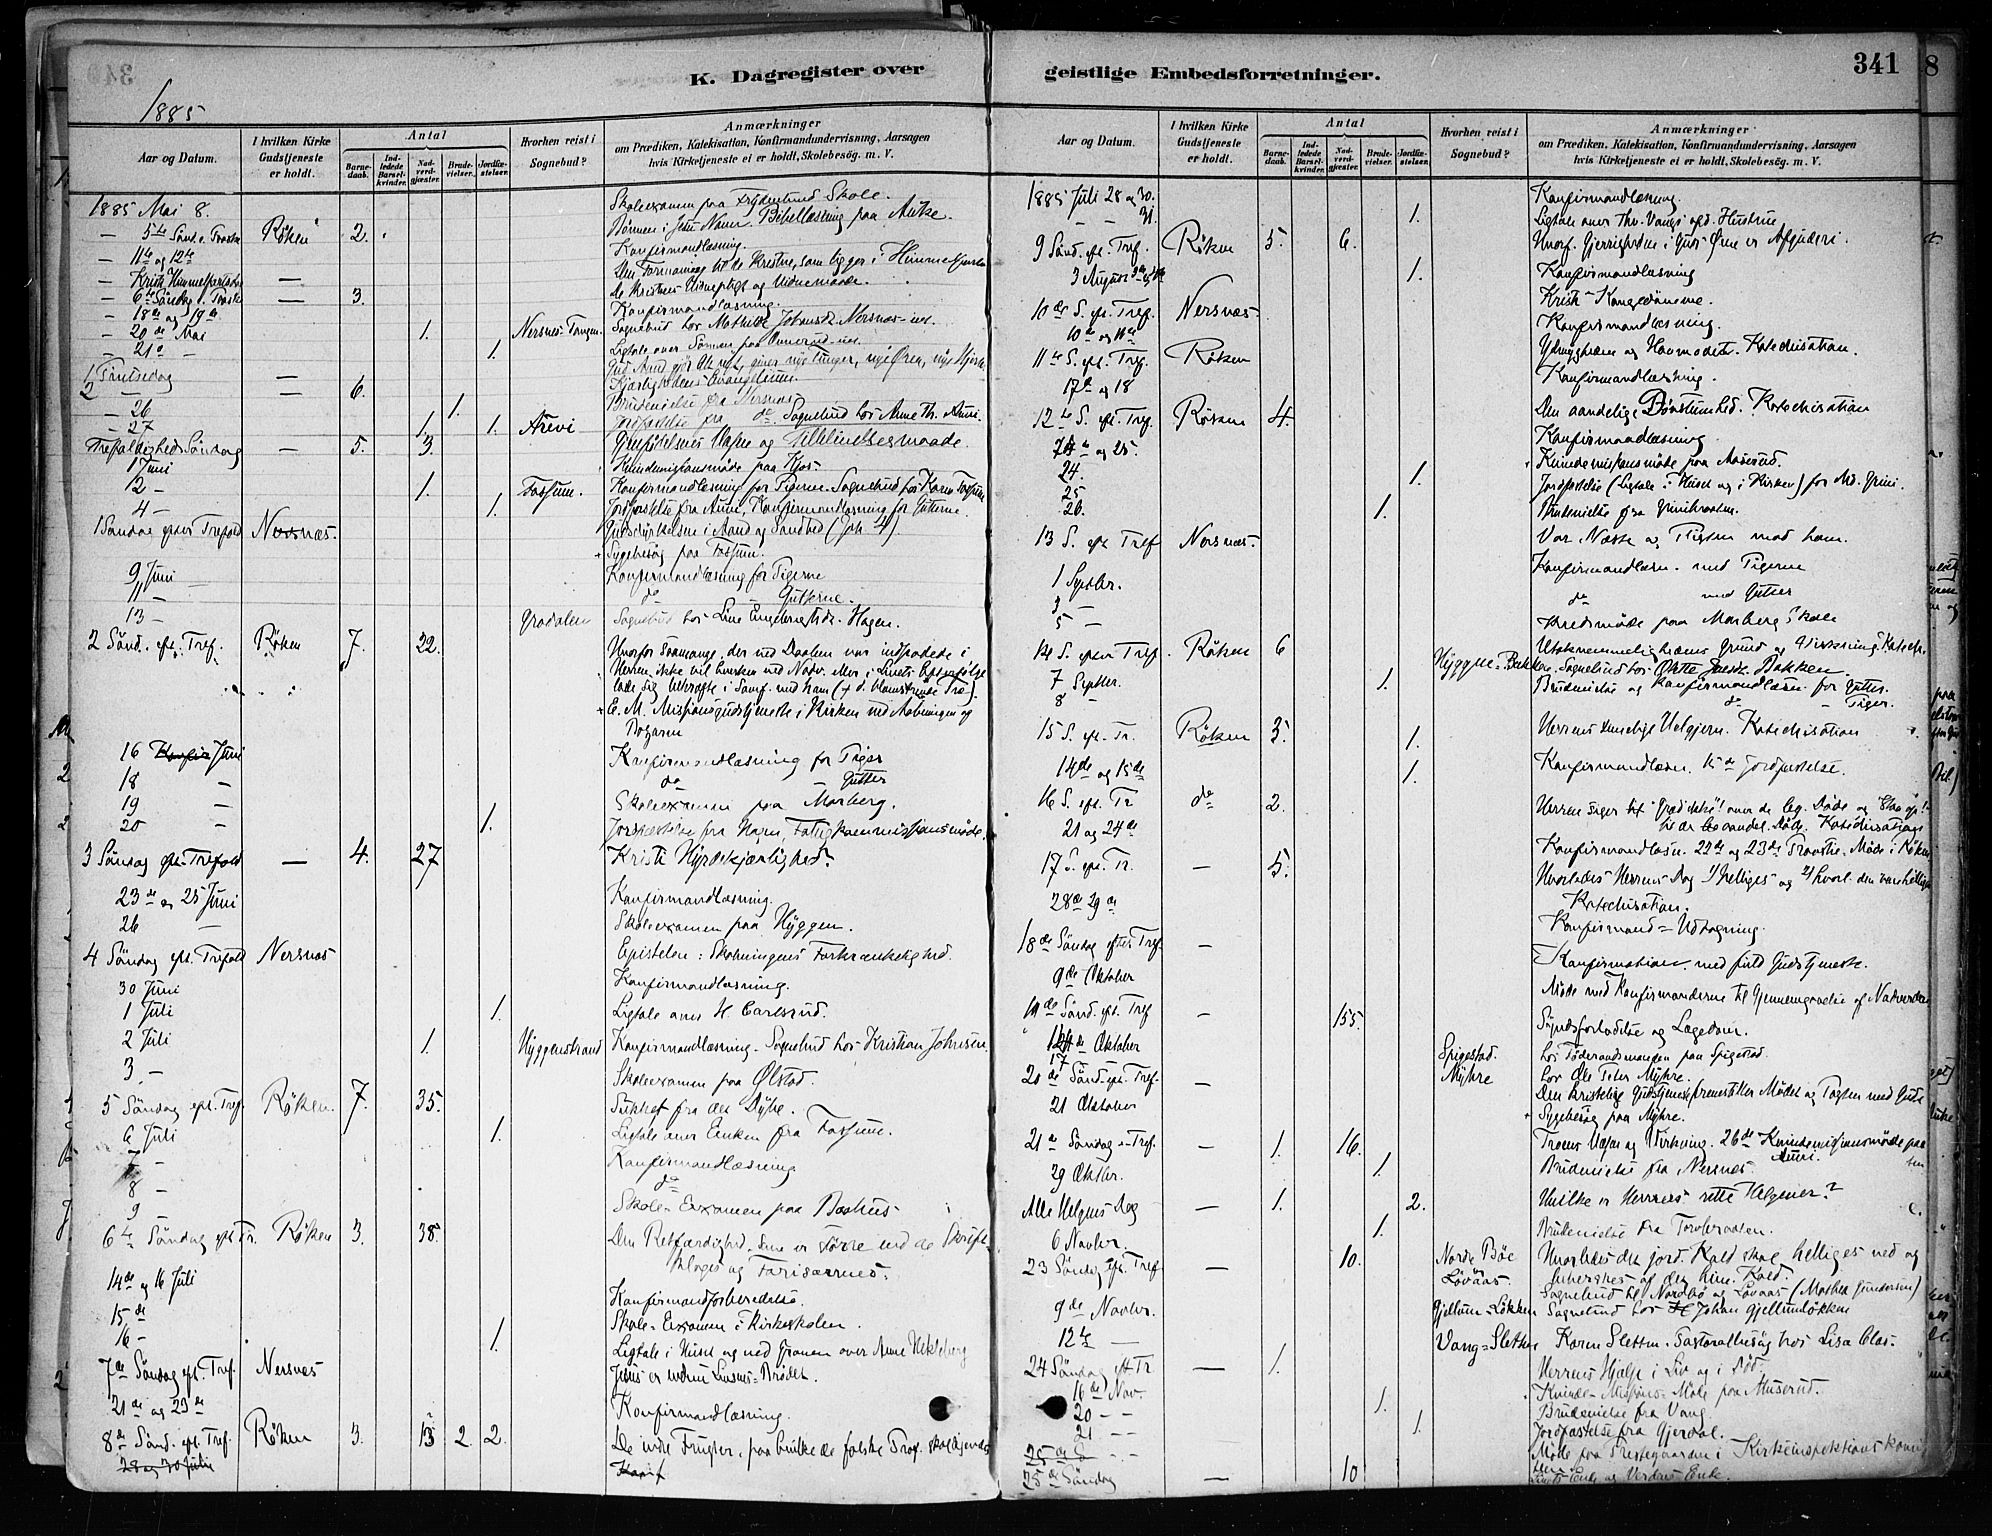 K. Dagregister over geistlige Embedsforretninger. 341
1885
Aar og Datum. I hvilken Kirke Gudstjeneste er holdt. Antal Barnedaab. Indledede Barselkvinder. Nadverdgjæster. Brudevielser. Jordfæstelser. Hvorhen reist i Sognebud? Anmærkninger om Prædiken, Katekisation, Konfirmandundervisning, Aarsagen hvis Kirketjeneste ei er holdt, Skolebesög. m. V.
1885 Mai 8. Skoleexamen paa Frydenlund Skole.
— 5te Sönd. e. Paaske Röken 2. Bönnen i Jesu Navn. Bibellæsning paa Auke.
— 11te og 12te Konfirmandlæsning.
— Kristi Himmelfartsdag — Den Formaning til de Kristne, som ligger i Himmelfarten
— 6te Söndag e. Paaske — 3. De Kristnes Vidnepligt og Vidnemaade.
— 18de og 19de Konfirmandlæsning.
— 20de Mai 1. Nersnes-Tangen. Sognebud hos Mathilde Johansdr. Nersnes-
— 21de — 1. Ligtale over
1 Pintsedag — Guds Aand gjör Alt nyt, giver nye Tunger, nye Ören, nye Hjerte
2 — 6. Kjærlighedens Evangelium.
— 26 1. Brudevielse fra Nersnæs
— 27 1. 1. Arevi Jordfæstelse fra do. Sognebud hos Anne Th. Auvi.
Trefoldigheds Söndag — 5. 3. Gjenfödelsens Væsen og Tilblivelsesmaade.
1 Juni Kvindemissionsmöde paa Kjos.
2 — 1. Fossum. Konfirmandlæsning for Pigerne. Sognebud hos Karen Fossum
4 — 1. Jordfæstelse fra Auvi, Konfirmandlæsning for Gutterne.
1 Söndag efter Trefold Nersnæs. Gudsdyrkelsen i Aand og Sandhed (Joh. 4).
+ Sygebesög paa Fossum.
9 Juni Konfirmandlæsning for Pigerne
11 — do Gutterne.
13 — Grodalen Sognebud hos Line Engebretsdr. Hagen.
2 Sönd. eft. Tref. Röken 7. 22. Hvorfor saamange, der ved Daaben var indpodede i
Herren, ikke vil bruden ved Nadv. eller i Livets Efterfölge
lade sig bevare i Samf. med ham
+ E. M. Missionsgudstjeneste i Kirken ved Aabningen og
Bazaren
16 Juni Konfirmandlæsning for Piger
18 — do — Gutter
19 — Skoleexamen paa Morberg.
20 — 1. Jordfæstelse fra Hagen. Fattigkommissionsmöde.
3 Söndag eft. Trefold — 4. 27 Kristi Hyrdekjærlighed.
23de og 25 Juni Konfirmandlæsning.
26 — Skoleexamen paa Hyggen.
4 Söndag eft. Trefold Nersnæs Epistelen: Skabningens Forkrænkelighed.
30 Juni Konfirmandlæsning.
1 Juli 1. Ligtale over H. Carlsrud.
2 Juli 1. Hyggenstrand Konfirmandlæsning. Sognebud hos Kristian Johnsen.
3 — Skoleexamen paa Ølstad.
5 Söndag eft. Tref. Röken. 7. 35. Sukket fra det Dybe.
6 Juli 1. Ligtale over Enken fra Fossum.
7 — Konfirmandlæsning
8 — do
9 Skole-Examen paa Baahus
6te Söndag eft Tr. Röken 3. 38. Den Retfærdighed, som er större end de Skrift-
kloges og Farisæernes.
14de og 16 Juli Konfirmandforberedelse.
15de Skole-Examen i Kirkeskolen.
16 — 1. Ligtale i Huset og ved Graven over Anne Hekleberg
7de Söndag eft. Tref. Nersnæs Jesus er vedom Livsens-Brödet.
21de og 23de Konfirmandlæsning.
8de Sönd. eft. Tref. Röken 3. 13 2 2. De indre Frugter, paa hvilke de falske Prof. skal kjendes
28 og 30 Julie Konf
Aar og Datum. I hvilken Kirke Gudstjeneste er holdt. Antal Barnedaab. Indledede Barselkvinder. Nadverdgjæster. Brudevielser. Jordfæstelser. Hvorhen reist i Sognebud? Anmærkninger om Prædiken, Katekisation, Konfirmandundervisning, Aarsagen hvis Kirketjeneste ei er holdt, Skolebesög. m. V.
1885 Juli 28 og 30. Konfirmandlæsning.
— — 31. 1. Ligtale over Thv. Vangs Hustru
9 Sönd. eft. Tref. Röken 5. 6. Hvorf. Gjerrigheden i Guds Öine er Afguderi.
3 August 1. Konfirmandlæsning
10de S. eft. Tref. Nersnæs. Kristi Kongedömme.
10de og 11te Konfirmandlæsning.
11te S. eft. Tref. Röken Ydmyghden og Hovmodet. Katechisation.
17de og 18 Konfirmandlæsning.
12te S. eft. Tref. Röken 4. Den aandelige Dövstumhed. Katechisation
24 og 25. Konfirmandlæsning
24. Kvindemissionsmöde paa Aaserud.
25 1. Jordfæstelse (Ligtale i Huset og i Kirken) for Md. Grini.
26 1. Brudevielse fra
13 S. eft Tref Nersnæs. Vor Næste og Pligten mod ham.
1 Septbr. Konfirmandlæsn. med Pigerne
3 — do med Gutter
5 — Kredsmöde paa Morberg Skole
14 S. efter Tref. Röken 6 Utaknemmelighedens Grund og Virkning. Katech.
7 Septbr. Hyggen-Bakken Sognebud hos Bakken
8 1. Brudevielse og Konfirmandlæsn. for Gutter.
do — Piger.
15 S. eft. Tr. Röken 3. 1. Herrens Velgjern. Katechisation
14de og 15de 1. Konfirmandlæsn. 15de Jordfæstelse.
16 S. eft. Tr do 2. Herren siger sit "Græd ikke"! over de leg. Döde og "Staa op!"
21 og 24de til de aandel. Döde. Katechisation
Konfirmandlæsn. 22de og 23de Provstie-Möde i Röken
17 S. eft. Tr. — 5. Hvorledes Herrens Dag 1) helliges og 2) hvorl. den vanhelliges
28de 29de Katechisation.
Konfirmand-Udtagning.
18de Söndag efter Tref. — Konfirmation med fuld Gudstjeneste.
9de Oktober Möde med Konfirmanderne til Gjennemgaaelse af Nadverden
19de Sönd. eft. Tref — 155. Syndsforladelse og Lægedom.
Oktober Spigestad. hos paa Spigestad.
17 Myhre hos Ole Peter Myhre.
20de Sönd. eft. Tref. — Den kristelige Gudstjeneste fremstiller Mödet og Pagten med Gud
21 Oktober + Sygebesög paa Myhre.
21de Söndag e. Tref. — 1. 16. Troens Væsen og Virkning. 26de Kvindemissionsmöde paa Auvi.
29 Oktbr. 1. Brudevielse fra Nersnæs.
Alle Helgens Dag — 1. 2. Hvilke er Herrens rette Helgener?
6 Novbr. 1. Brudevielse fra Torvbraaten.
23 Söndag eft. Tref — 10. Nordre Böe Hvorledes det jord. Kald skal helliges ved og
Lövaas. beherskes af det him. Kald.
Sognebud til Nordbö og Lövaas (Mathea Gundersen)
9de Novbr. Gjellum-Lökken Sognebud hos Johan Gjellumlökken
12te — Vang-Sletten Karen Sletten. Pastoralbesög hos Lisa Clas.
24 Söndag eft Tr — 1. Herrens Hjælp i Liv og i Död.
16de Nov. Kvinde-Missions-Möde paa Muserud.
20 — 1. Brudevielse fra Vang.
21 — 1 Jordfæstelse fra Gjerdal.
25de S Möde paa Prestegaarden i Kirkeinspektionskommis
25de Söndag — 10 Livets Ende og Verdens Ende.